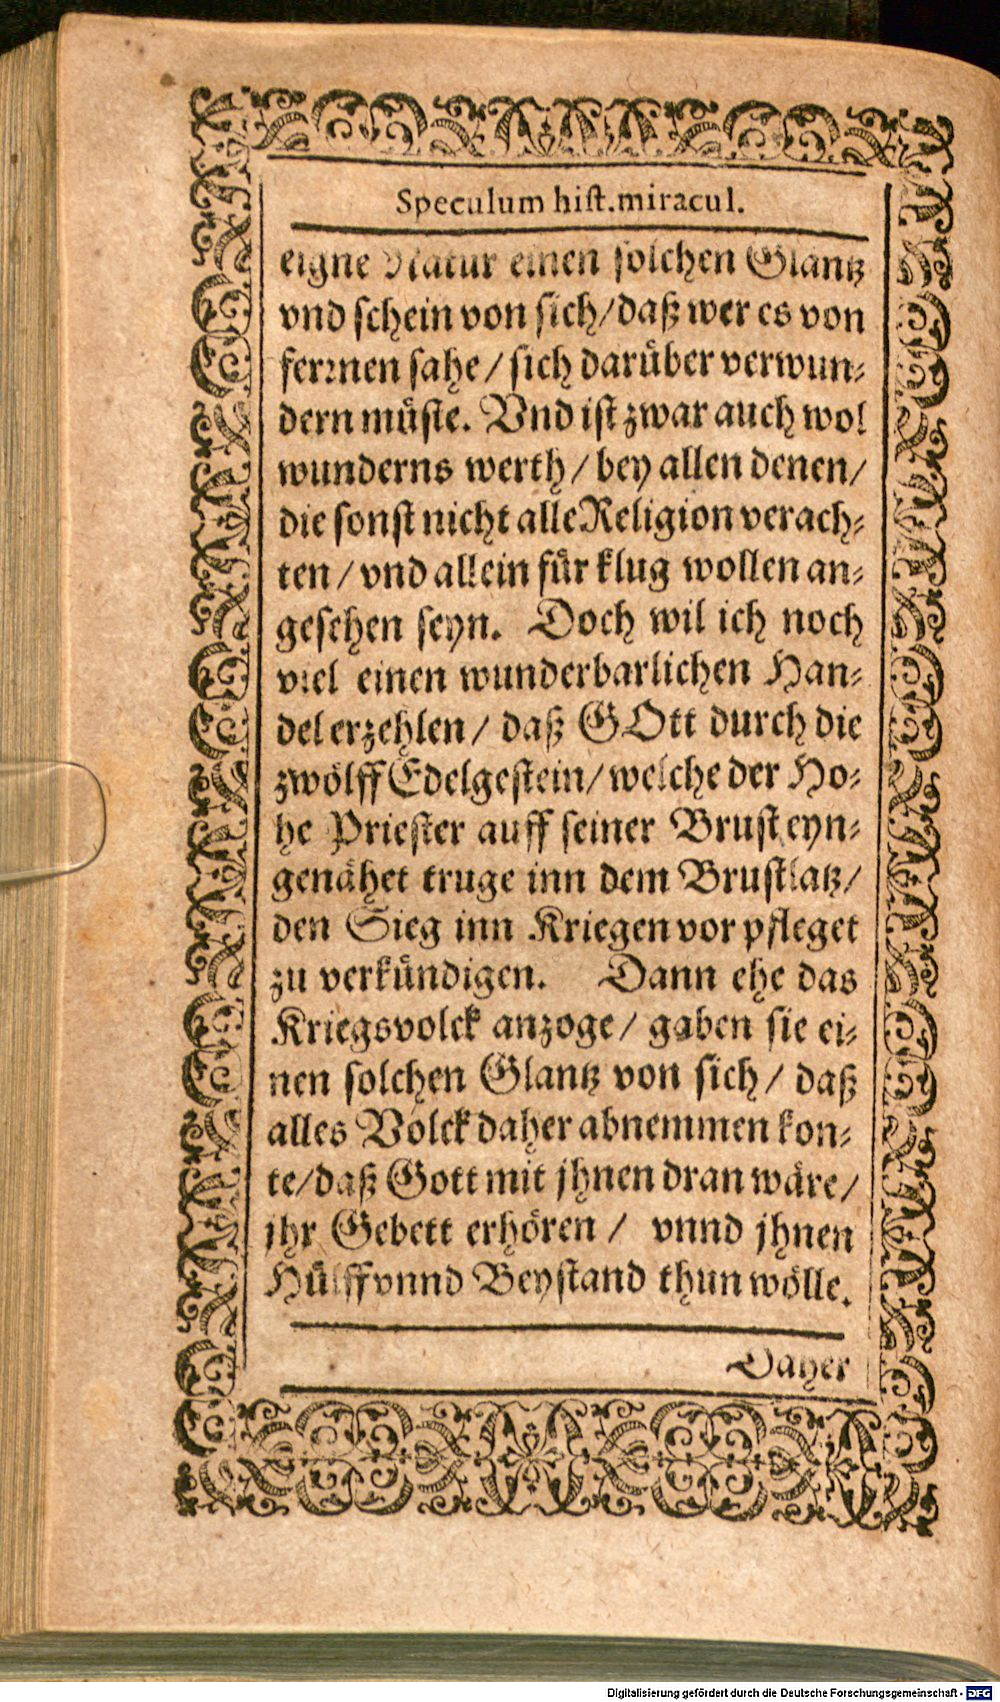 Speculum hist. miracul.
eigne Natur einen solchen Glantz
vnd schein von sich/daß wer es von
ferrnen sahe/ sich darüber verwun-
dern müste. Vnd ist zwar auch wol
wunderns werth/ bey allen denen/
die sonst nicht alle Religion verach-
ten/ vnd allein für klug wollen an-
gesehen seyn. Doch wil ich noch
viel einen wunderbarlichen Han-
del erzehlen/ daß GOtt durch die
zwölff Edelgestein/ welche der Ho-
he Priester auff seiner Brust eyn-
genähet truge inn dem Brustlatz/
den Sieg inn Kriegen vor pfleget
zu verkündigen. Dann ehe das
Kriegsvolck anzoge/ gaben sie ei-
nen solchen Glantz von sich/ daß
alles Volck daher abnemmen kon-
te/daß Gott mit jhnen dran wäre/
jhr Gebett erhören/ vnnd jhnen
Hülff vnnd Beystand thun wölle.
Daher
Digitalisierung gefördert durch die Deutsche Forschungsgemeinschaft - DFG